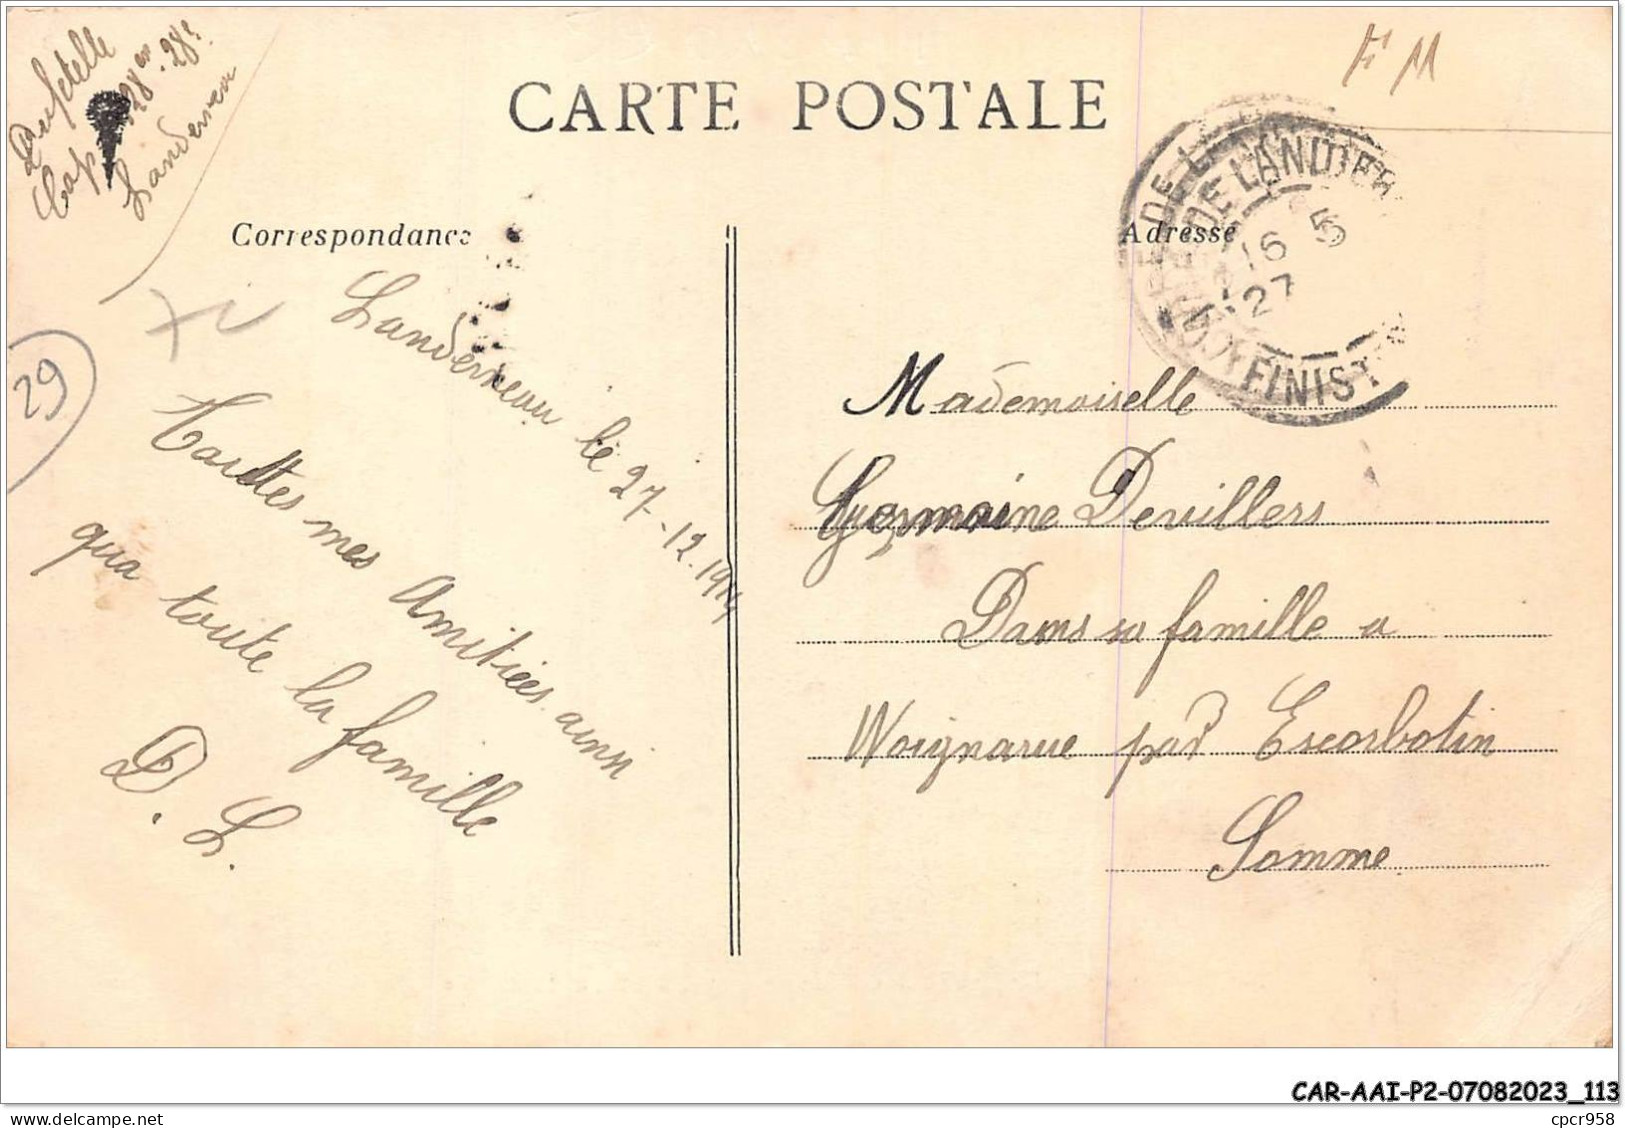 F M
CARTE POSTALE
28e
Landerneau
Correspondance
Adresse
DE LANDER
16 5
27
FINIST
29
Landerneau le 27-12.1914
Toutes mes Amitiées ainsi
qua toute la famille
D. L.
Mademoiselle
Germaine Devillers
Dans sa famille a
Woignarue par Escarbotin
Somme
CAR-AAI-P2-07082023_113
cpcr958